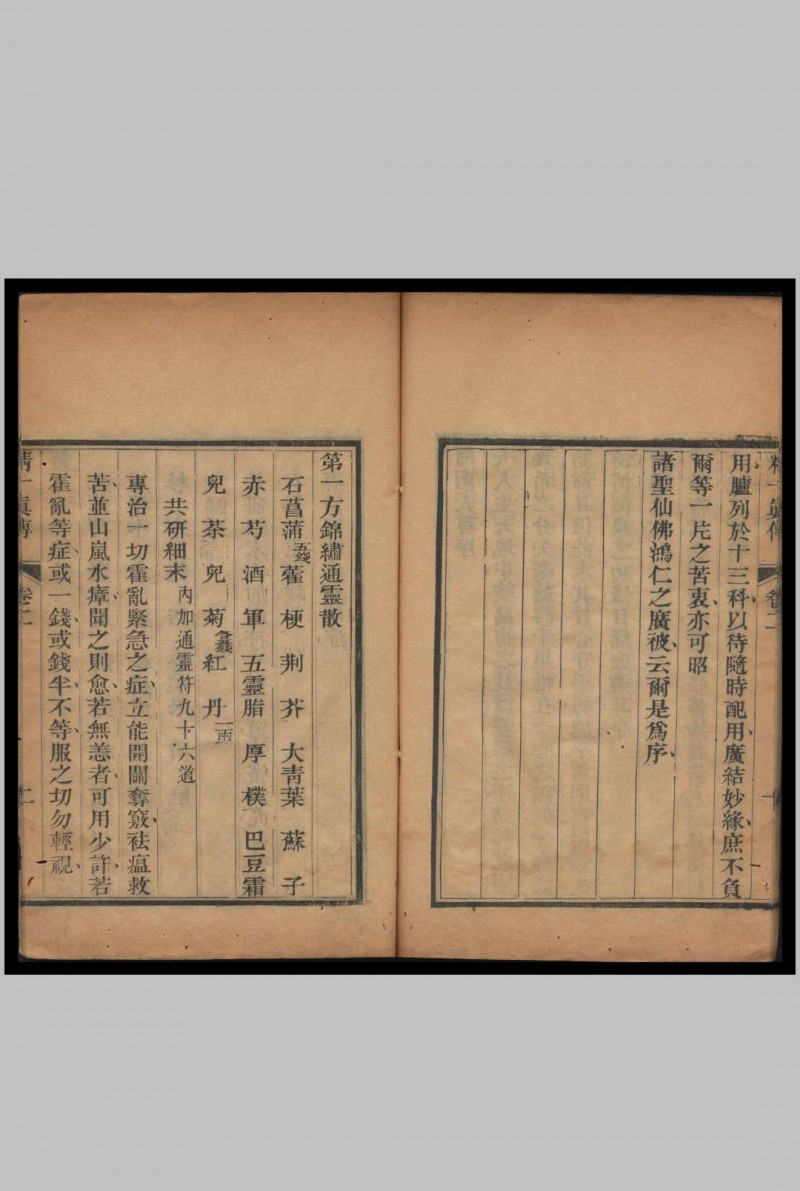 用臚列於十三科以待隨時配用、廣結妙緣、庶不負
爾等一片之苦衷、亦可昭
諸聖仙佛鴻仁之廣被、云爾是爲序、
精一眞傳
卷二
第一方錦繡通靈散
石菖蒲 藿梗 荆芥 大青葉 蘇子
赤芍 酒軍 五靈脂 厚樸 巴豆霜
兒茶 兒菊 紅丹一兩
共研細末內加通靈符九十六道
專治一切霍亂緊急之症、立能開關奪竅、祛瘟救
苦、並山嵐水瘴、聞之則愈、若無恙者、可用少許、若
霍亂等症、或一錢、或錢半不等、服之切勿輕視、
精一眞傳
卷二
二